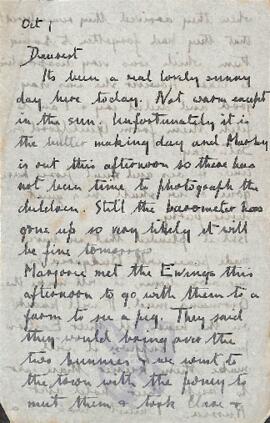 Oct 1
Dearest
Its been a real lovely sunny
day here today. Not warm except
in the sun. Unfortunately it is
the butter making day and
is out this afternoon so there has
not been time to photograph the
children. Still the barometer has
gone up so very likely it will
be fine tomorrow
Marjorie met the Ewings this
afternoon to go with them to a
farm to see a pig. They said
they would bring over the
two bunnies & we went to
the town with the poney to
meet them & took &